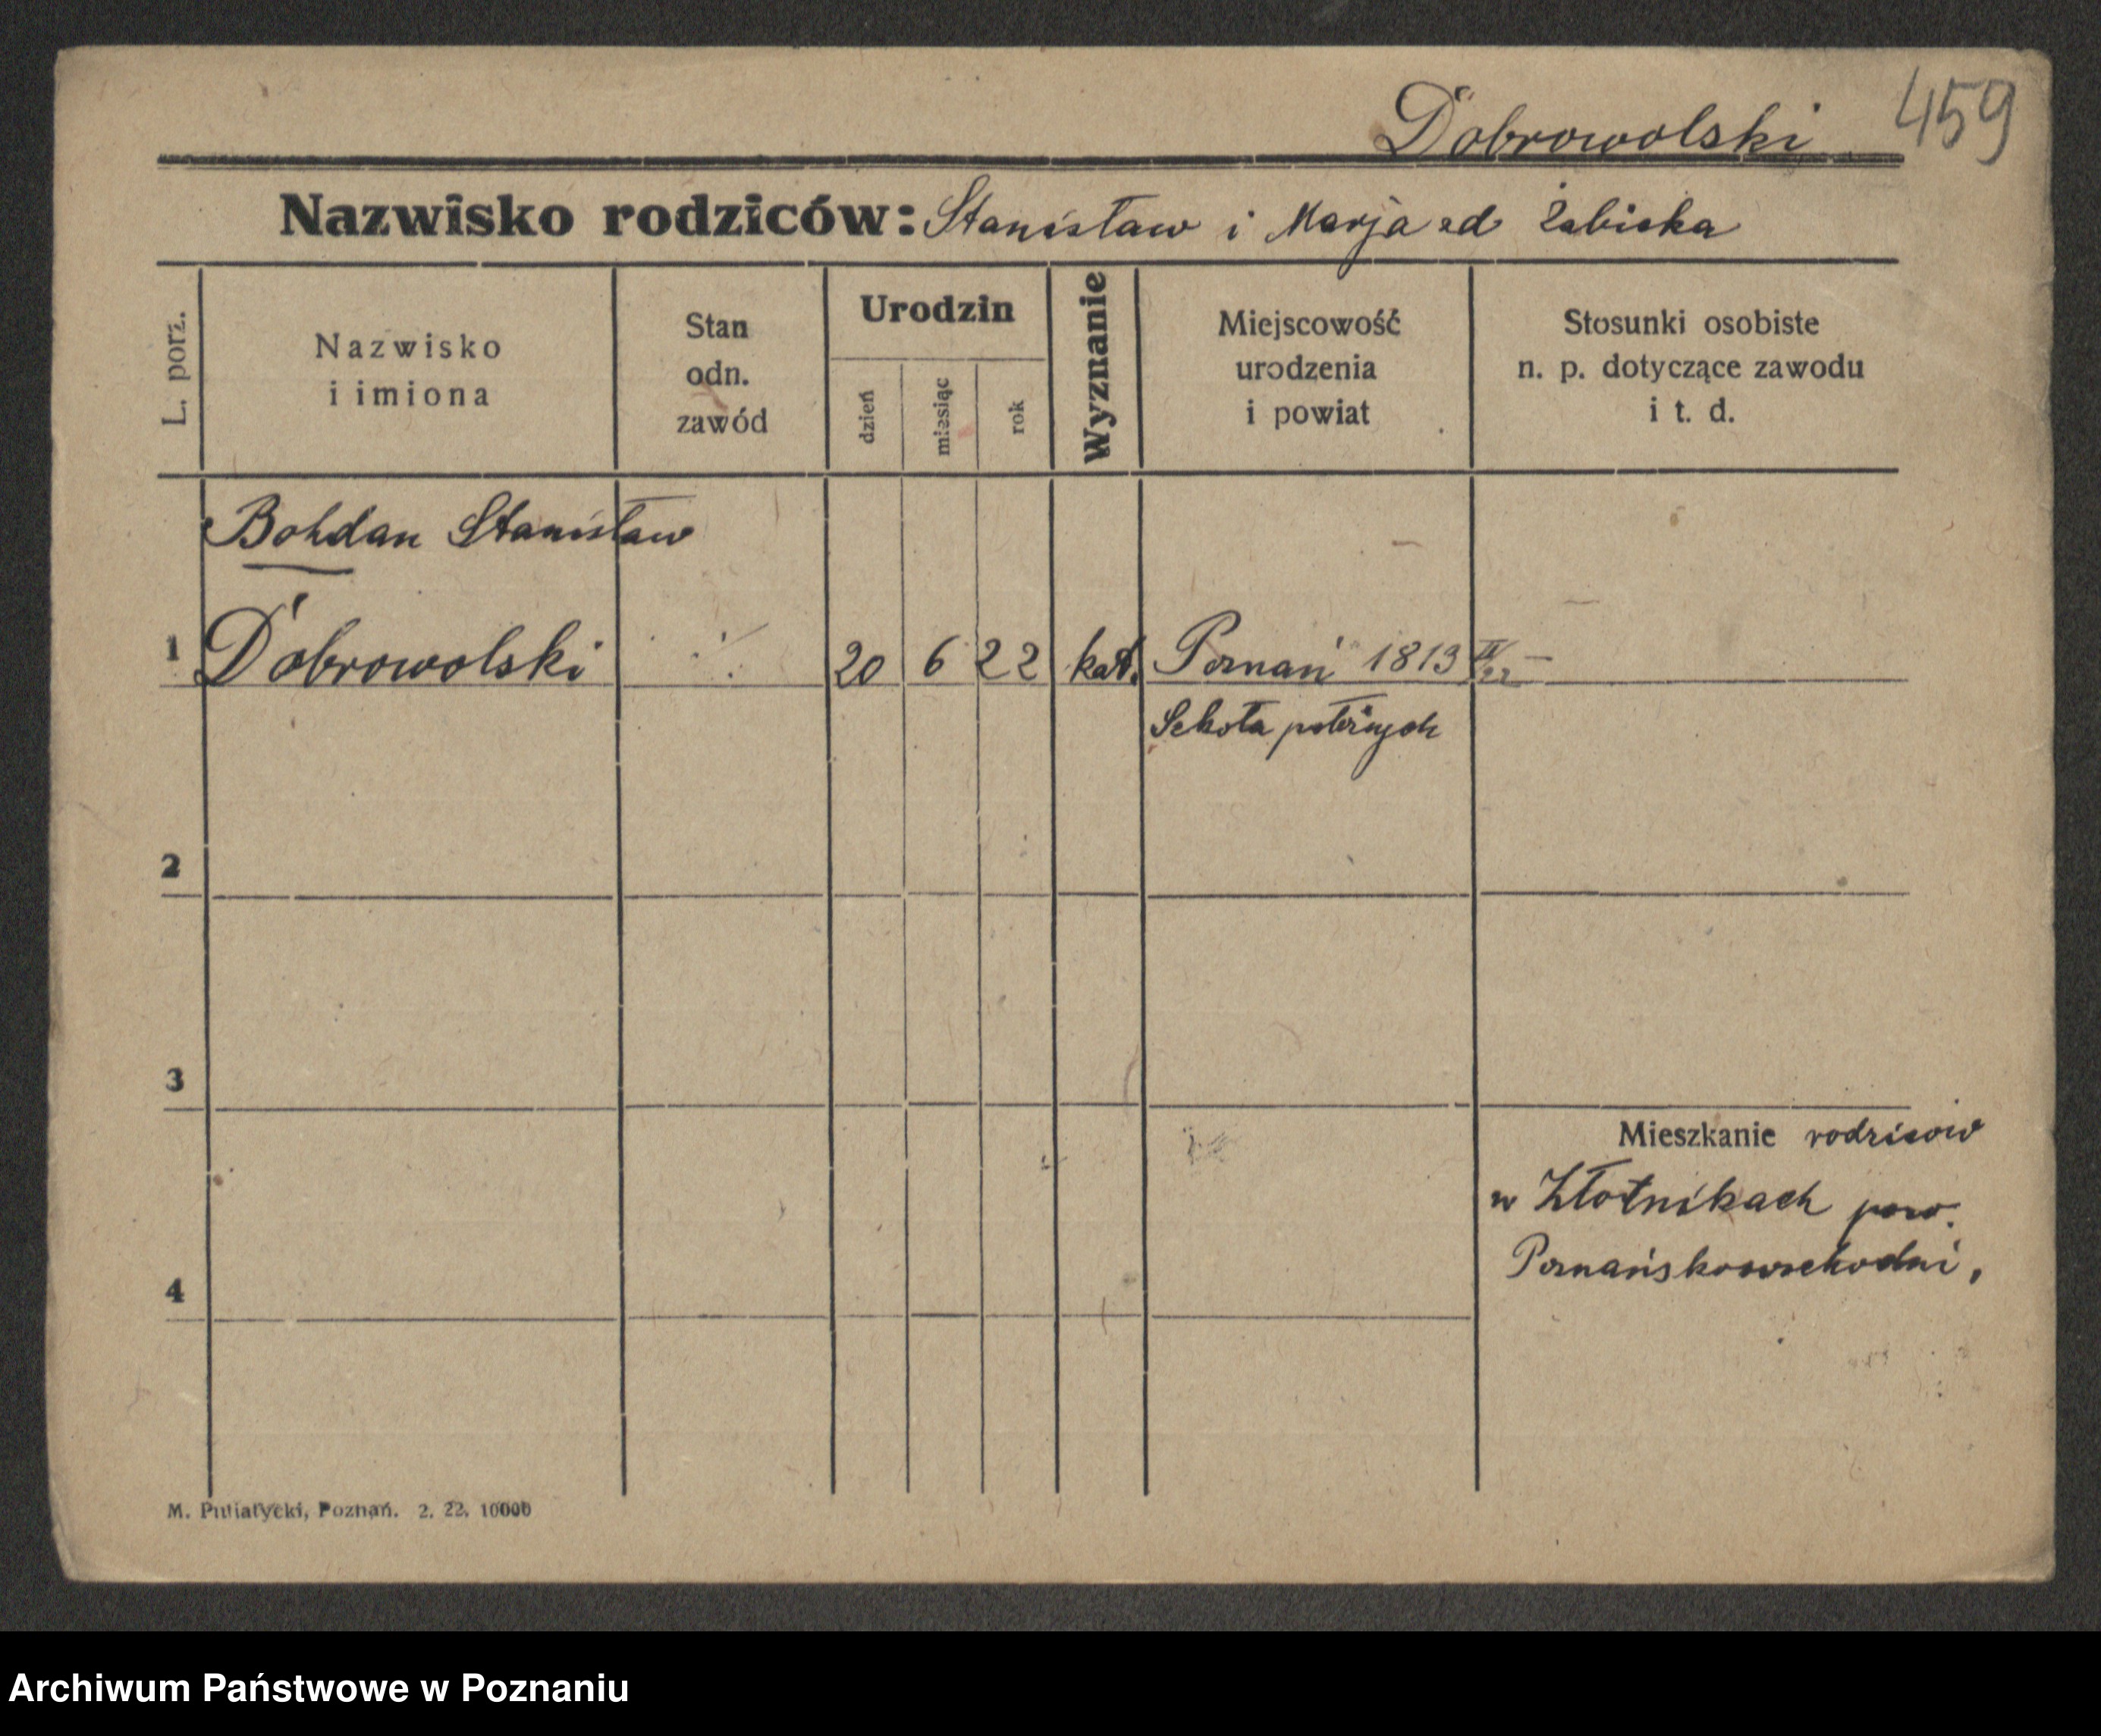 Dobrowolski 459
Nazwisko rodziców: Stanisław i Marja zd Żabicka
L. porz.
Nazwisko
i imiona
Stan
odn.
zawód
Urodzin
dzień
miesiąc
rok
Wyznanie
Miejscowość
urodzenia
i powiat
Stosunki osobiste
n. p. dotyczące zawodu
i t. d.
Bohdan Stanisław
1 Dobrowolski 20 6 22 kat. Poznań 1813 IV/22
Szkoła położnych
2
3
Mieszkanie rodziców
w Złotnikach pow.
Poznańskowschodni,
4
M. Putiatycki, Poznań. 2. 22. 10000
Archiwum Państwowe w Poznaniu